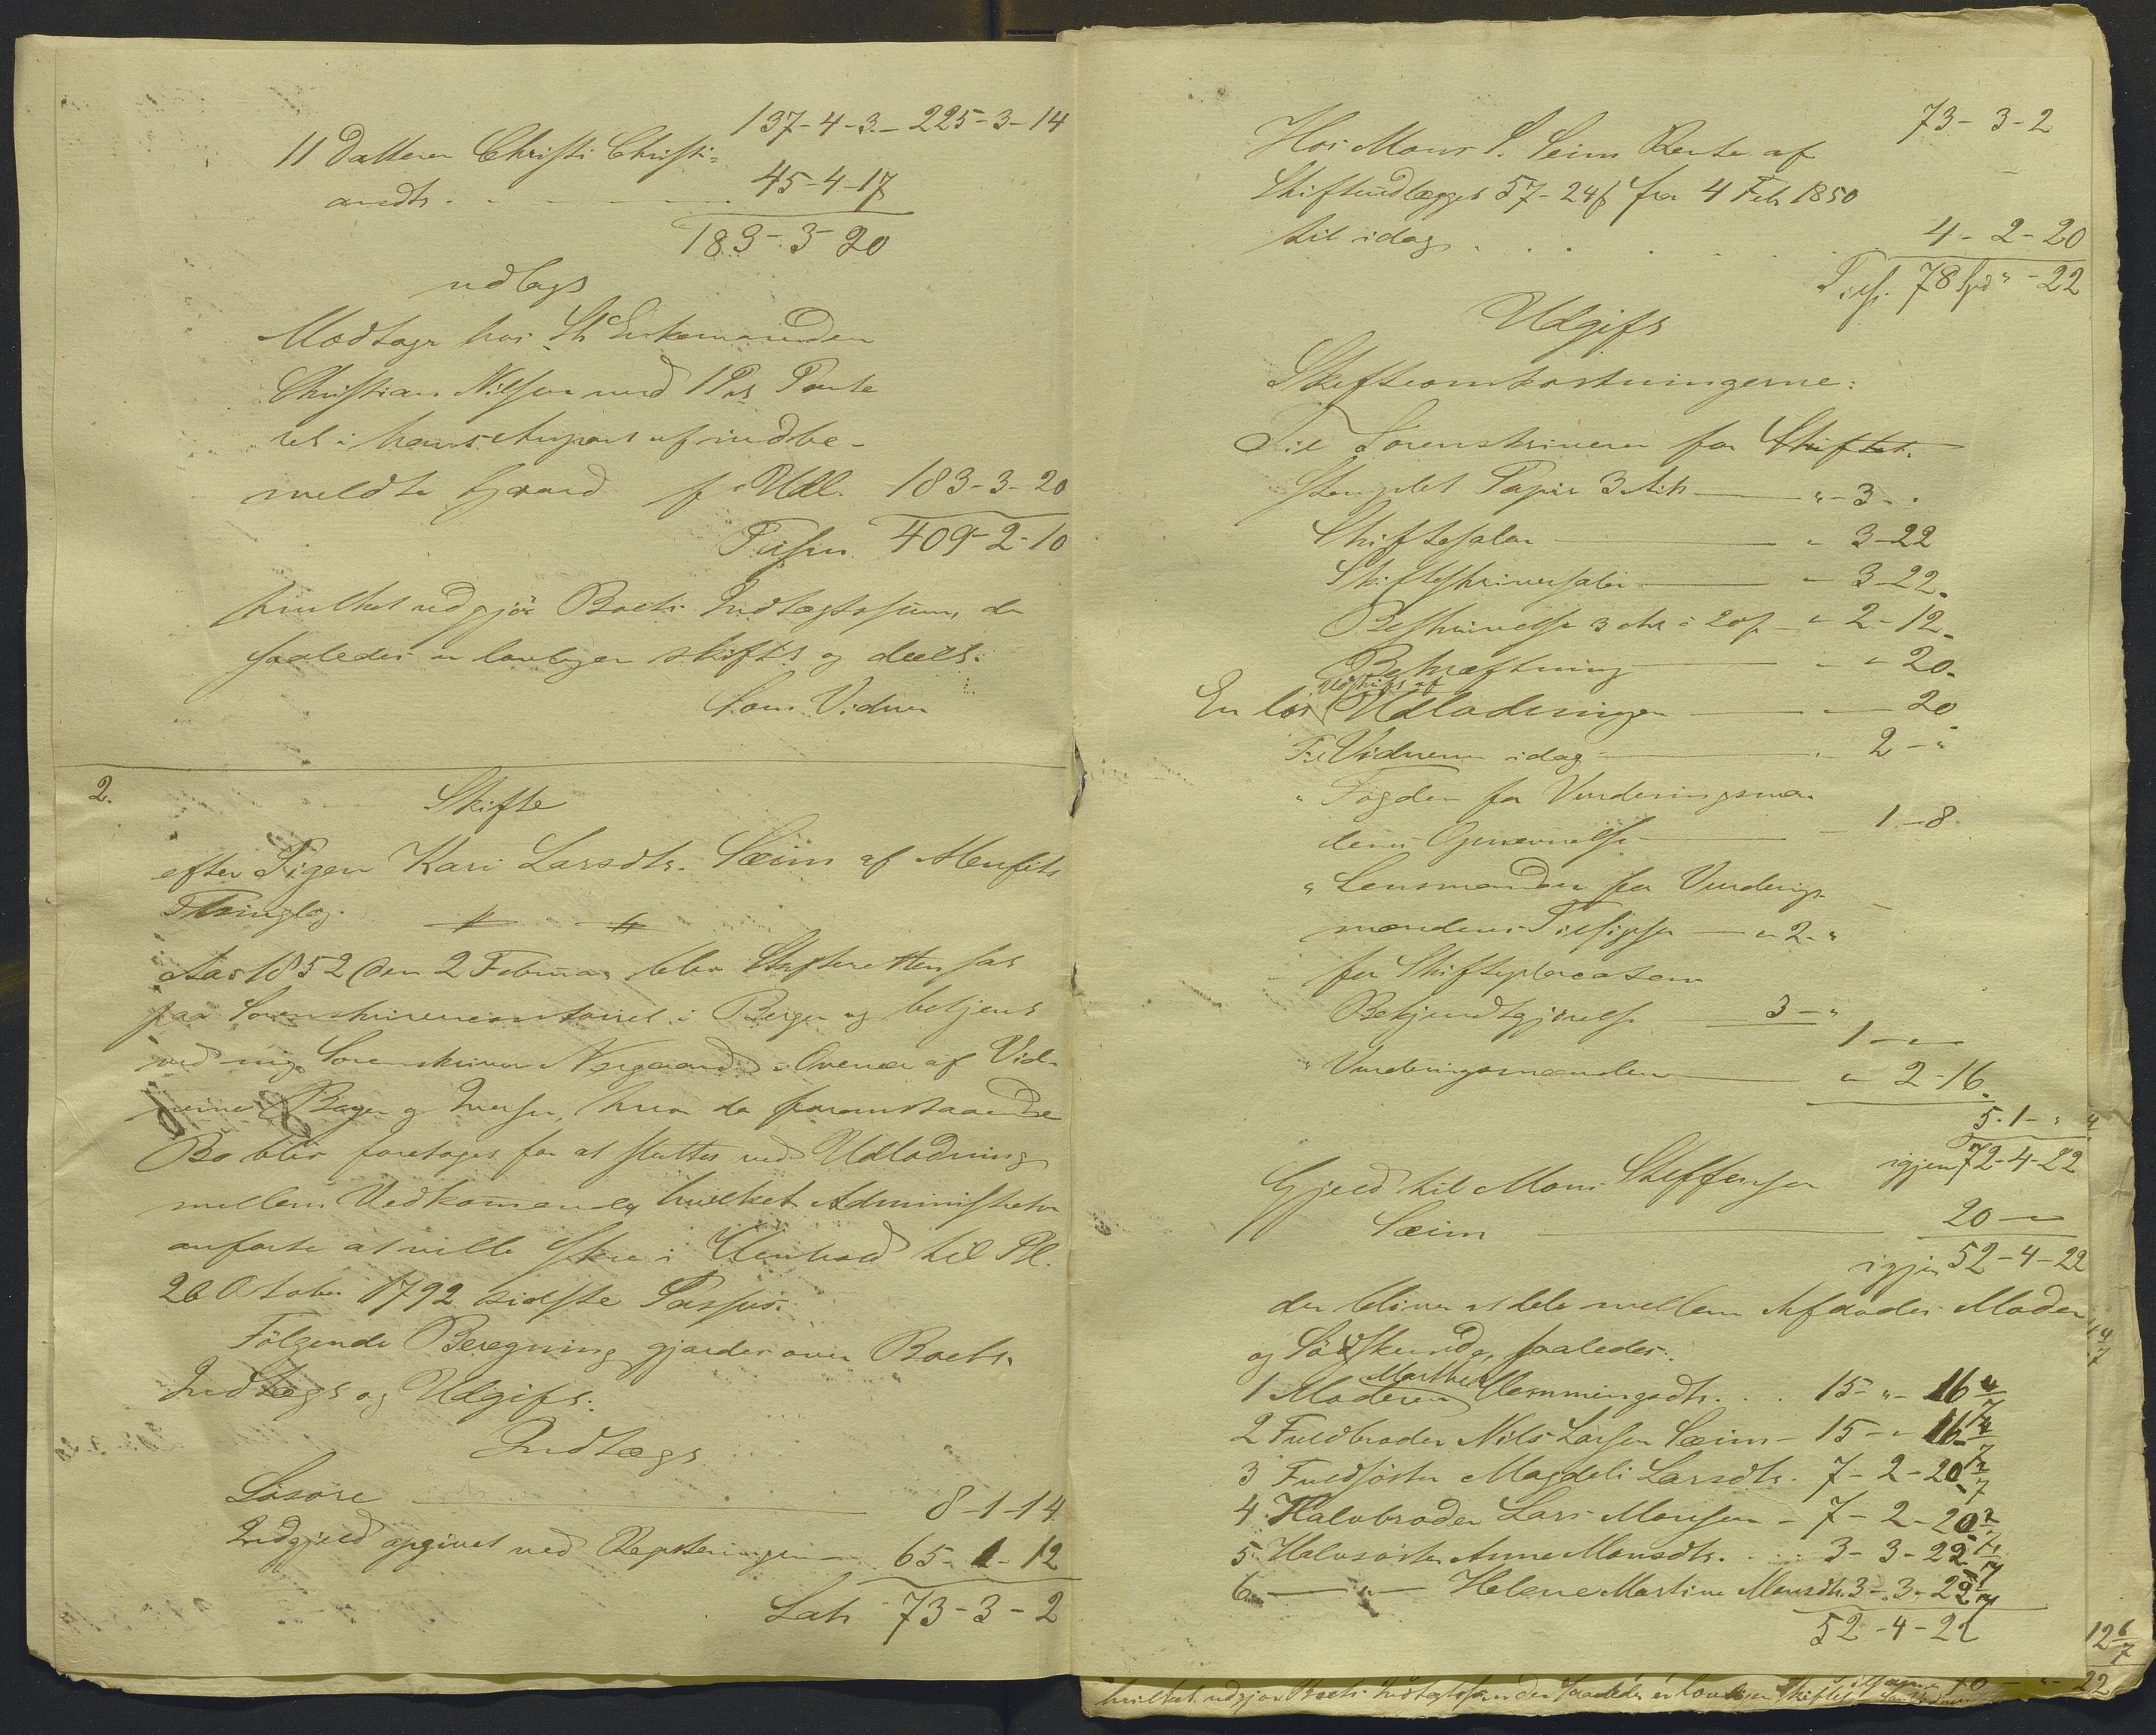 137-4-3 - 225-3-14
11 Datteren Christi Christi-
andtr. 45-4-17
183-3-20
udlagt
Modtaget hos St. Enkemanden
Christian Nilsen med 1 Pr. Pante
ret i hans Anpart af indbe-
meldte Gaard f. Udl. 183-3-20
Tilsm. 409-2-10
hvilket udgjør Boets Indtægtssum, der
saaledes er lovligen skiftet og deelt.
Som Vidner
2.
Skifte
efter Pigen Karî Larsdtr. Sæim af Alenfits
Thinglag.
Aar 1852 den 2 Februar blev Skifteretten sat
paa Sorenskrivercontoiret i Bergen og betjent
ved mig Sorenskriver Nergaard i Overvær af Vid-
nerne Bøgen og Iversen, hvor da foranstaaende
Bo blev foretaget for at sluttes ved Udlodning
mellem Vedkommende, hvilket Administrator
anførte at ville skee i Henhold til Pl.
26 October 1792 sidste Passus.
Følgende Beregning gjordes over Boets
Indtægt og Udgift.
Indtægt
Løsøre 8-1-14
Indgjeld opgivet ved Registeringen 65-1-12
Lats 73-3-2
73-3-2
Hos Mons S. Seim Rente af
Skifteudlægget 57-24 ß fra 4 Feb 1850
til idag 4-2-20
Tils. 78 Spd " - 22
Udgift
Skifteomkostningerne:
Til Sorenskriveren for Skiftet.
stemplet Papir 3 Ark " - 3 - "
Skiftesalær " 3-22
Skifteskriversalær " 3-22
Beskrivelse 3 Ark à 20 ß " 2-12
Bekræftning " - " 20
En løs Udskrift af Udlodningen 20
Til Vidnerne idag 2 - "
" Fogden for Vurderingsmæn
denes Opnævnelse 1-8
" Lensmanden for Vurderings-
mændenes Tilsigelse " 2 - "
for Skifteplacatens
Bekjendtgjørelse 3 - "
1 - " - "
" Vurderingsmændene " 2-16
5-1- "
igjen 72-4-22
Gjeld til Mons Steffensen
Sæim 20 - "
igjen 52-4-22
der bliver at dele mellem Afdødes Moder
og Sødskende, saaledes:
1 Moderen Marthe Clemmingsdtr. 15- " - 16 4/7
2 Fuldbroder Nils Larsen Sæim - 15 - " - 16 4/7
3 Fuldsøster Magdeli Larsdtr. 7-2-20 2/7
4 Halvbroder Lars Monsen - 7-2-20 2/7
5 Halvsøster Anne Monsdtr. 3-3-22 1/7
6 — " — Helene Martine Monsdtr. 3-3-22 1/7
52-4-22
12 6/7
22
hvilket udgjør Boets Indtægtssum der saaledes er lovligen skiftet